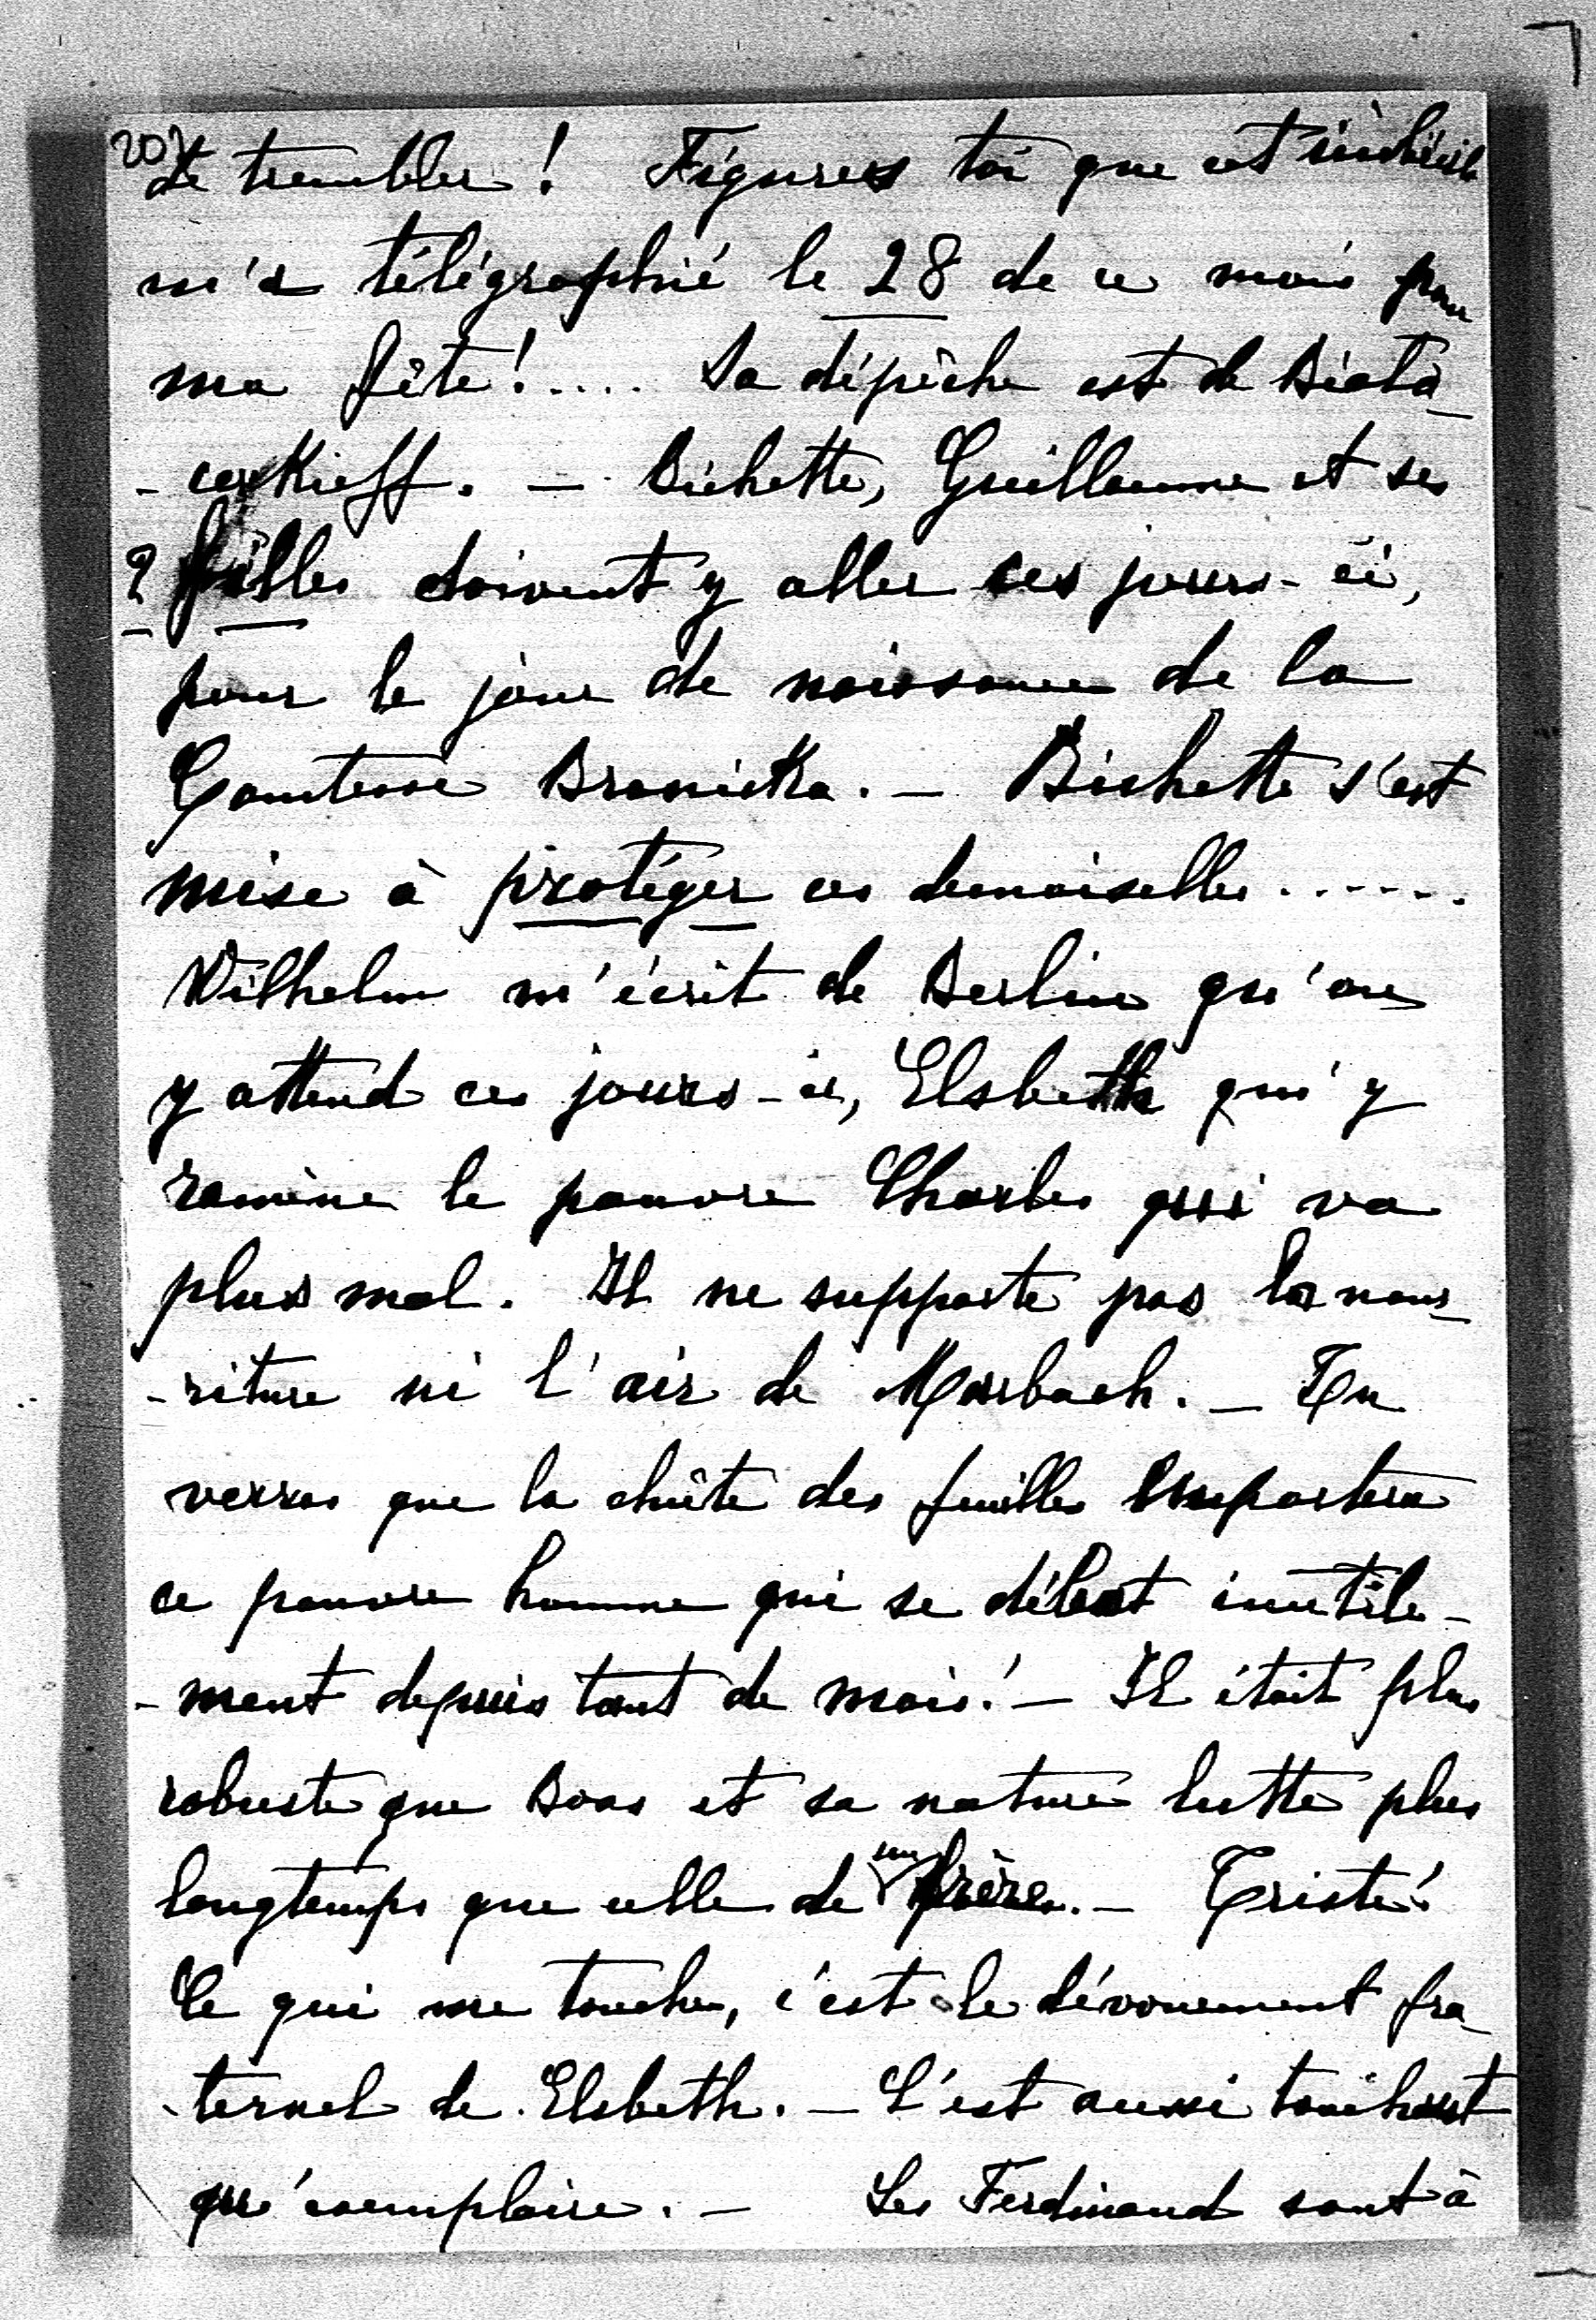 207
de trembler! Figures toi que cet imbécile
m'a télégraphié le 28 de ce mois pour
ma fête!.... Sa dépêche est de Biala-
-cerkieff. — Bichette, Guillaume et ses
2 filles doivent y aller ces jours-ci,
pour le jour de naissance de la
Comtesse Branicka. — Bichette s'est
mise à protéger ces demoiselles.....
Wilhelm m'écrit de Berlin qu'on
y attend ces jours-ci, Elsbeth qui y
ramène le pauvre Charles qui va
plus mal. Il ne supporte pas la nour-
-riture ni l'air de Marbach. — Tu
verras que la chûte des feuilles emportera
ce pauvre homme qui se débat inutile-
-ment depuis tant de mois! — Il était plus
robuste que Boas et sa nature lutte plus
longtemps que celle de son frère. — Triste!
Ce qui me touche, c'est le dévouement fra-
-ternel de Elsbeth. — C'est aussi touchant
qu'exemplaire. — Les Ferdinand sont à